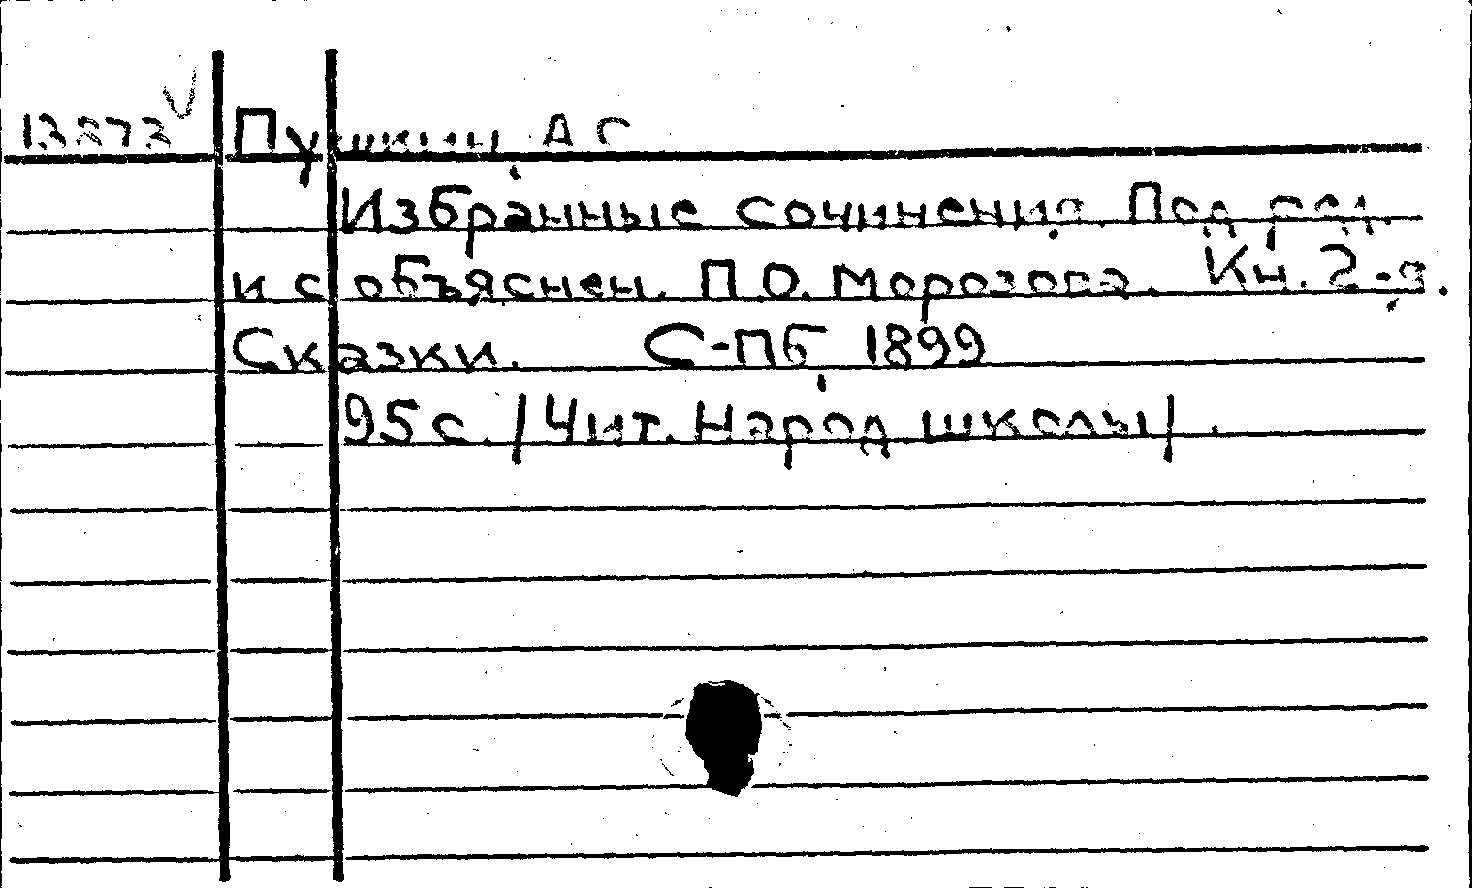 Пушкин, А С
Избранные сочинения. Под ред.
и с объяснен. П.О. Морозова. Кн. 2-я.
Сказки. С-Пб, 1899
95 с. /Чит. Народ. школы/.